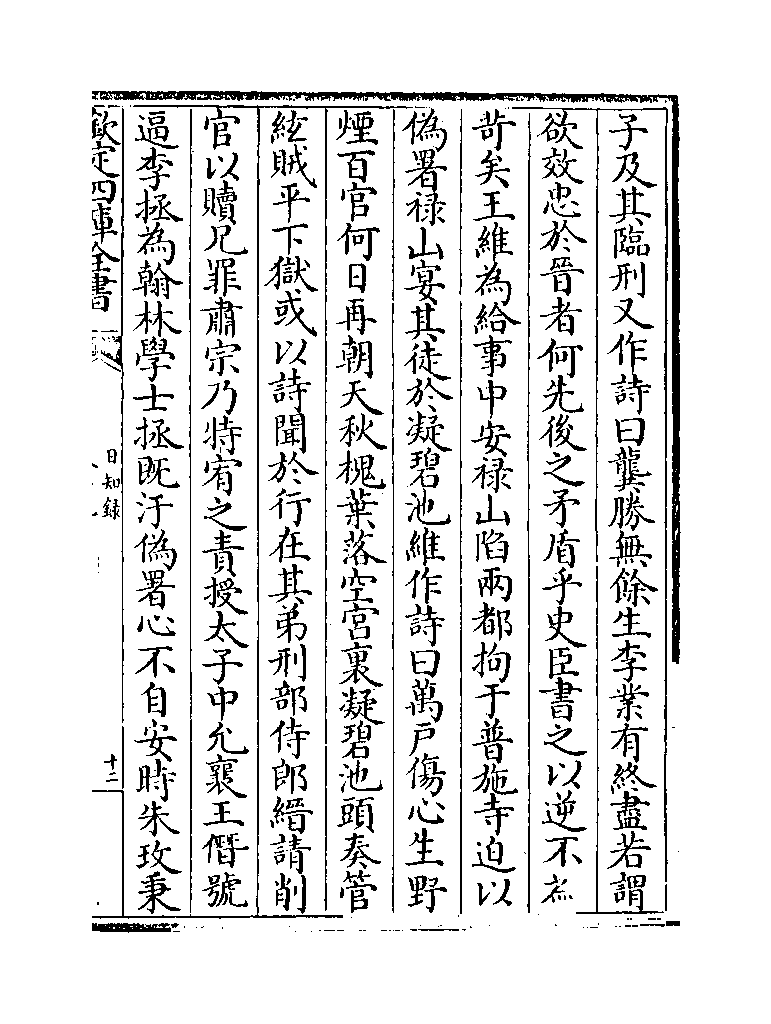 子及其臨刑又作詩曰龔勝無餘生李業有終盡若謂
欲效忠於晉者何先後之矛盾乎史臣書之以逆不為
苛矣王維為給事中安禄山陷兩都拘于普施寺迫以
偽署禄山宴其徒於凝碧池維作詩曰萬户傷心生野
煙百官何日再朝天秋槐葉落空宫裏凝碧池頭奏管
絃賊平下獄或以詩聞於行在其弟刑部侍郎縉請削
官以贖兄罪肅宗乃特宥之責授太子中允襄王僭號
逼李拯為翰林學士拯既汙偽署心不自安時朱玫秉
欽定四庫全書
日知録
十二